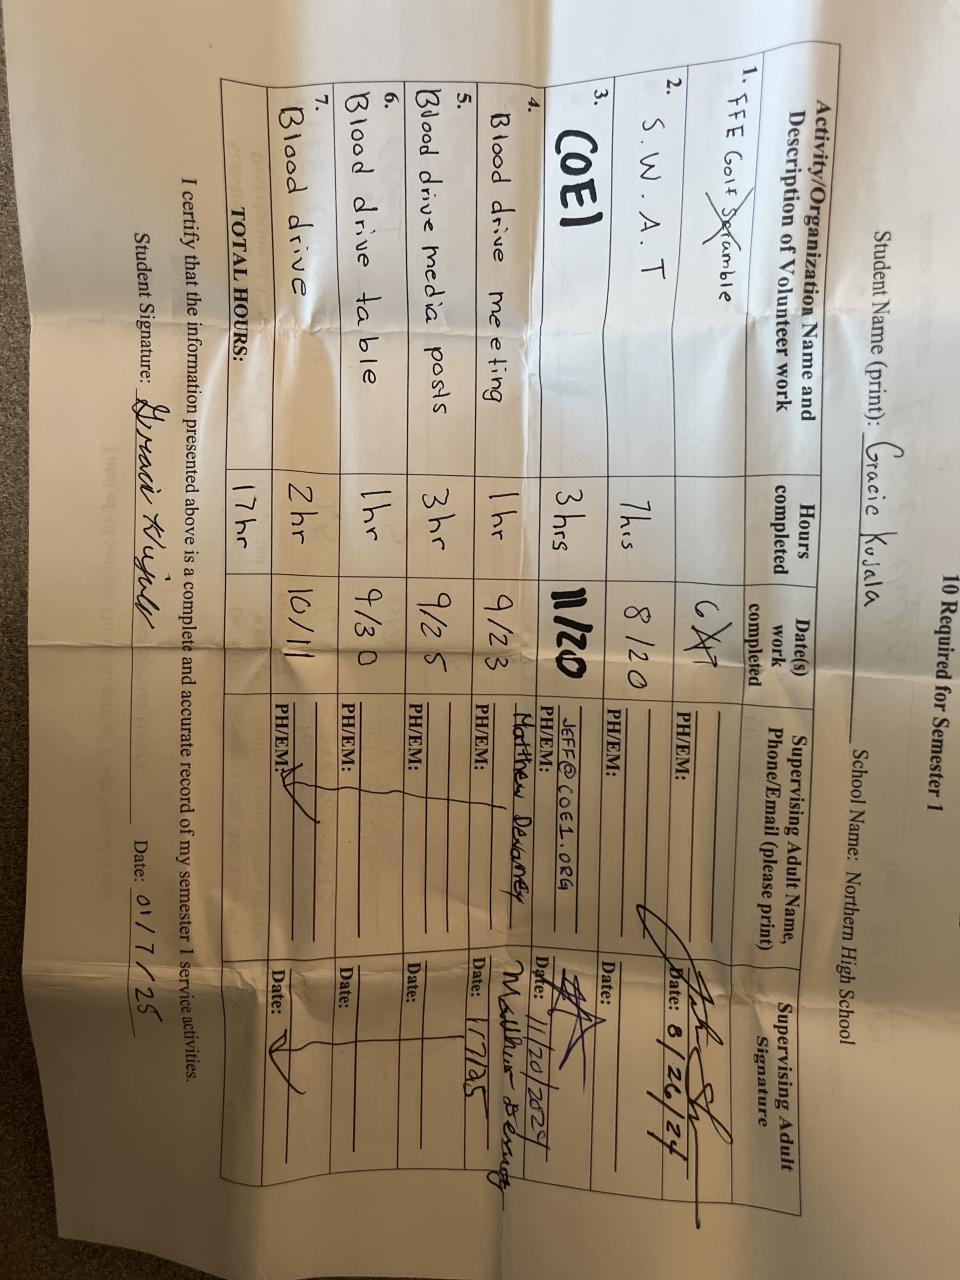 10 Required for Semester 1
Student Name (print): Gracie Kujala School Name: Northern High School
Activity/Organization Name and Description of Volunteer work
Hours completed
Date(s) work completed
Supervising Adult Name, Phone/Email (please print)
Supervising Adult Signature
1. FFE Golf Scramble
6/17
PH/EM:
Date: 8/26/24
2. S.W.A.T
7hrs
8/20
PH/EM:
Date:
3. COE1
3 hrs
11/20
JEFF@COE1.ORG
PH/EM:
Date: 11/20/2024
4. Blood drive meeting
1hr
9/23
Matthew Devaney
PH/EM:
Matthew
Date: 1/7/25
5. Blood drive media posts
3hr
9/25
PH/EM:
Date:
6. Blood drive table
1hr
9/30
PH/EM:
Date:
7. Blood drive
2hr
10/11
PH/EM:
Date:
TOTAL HOURS:
17hr
I certify that the information presented above is a complete and accurate record of my semester 1 service activities.
Student Signature: Gracie Kujala Date: 01/7/25